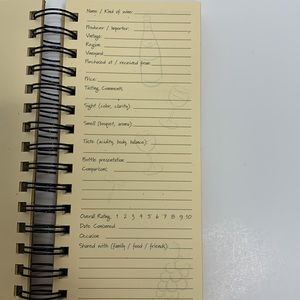 Name / Kind of wine:
Producer / Importer:
Vintage:
Region:
Vineyard:
Purchased at / received from:
Price:
Tasting Comments
Sight (color, clarity):
Smell (bouquet, aroma):
Taste (acidity, body, balance):
Bottle presentation:
Comparisons:
Overall Rating 1 2 3 4 5 6 7 8 9 10
Date Consumed:
Occasion:
Shared with (family / food / friends):